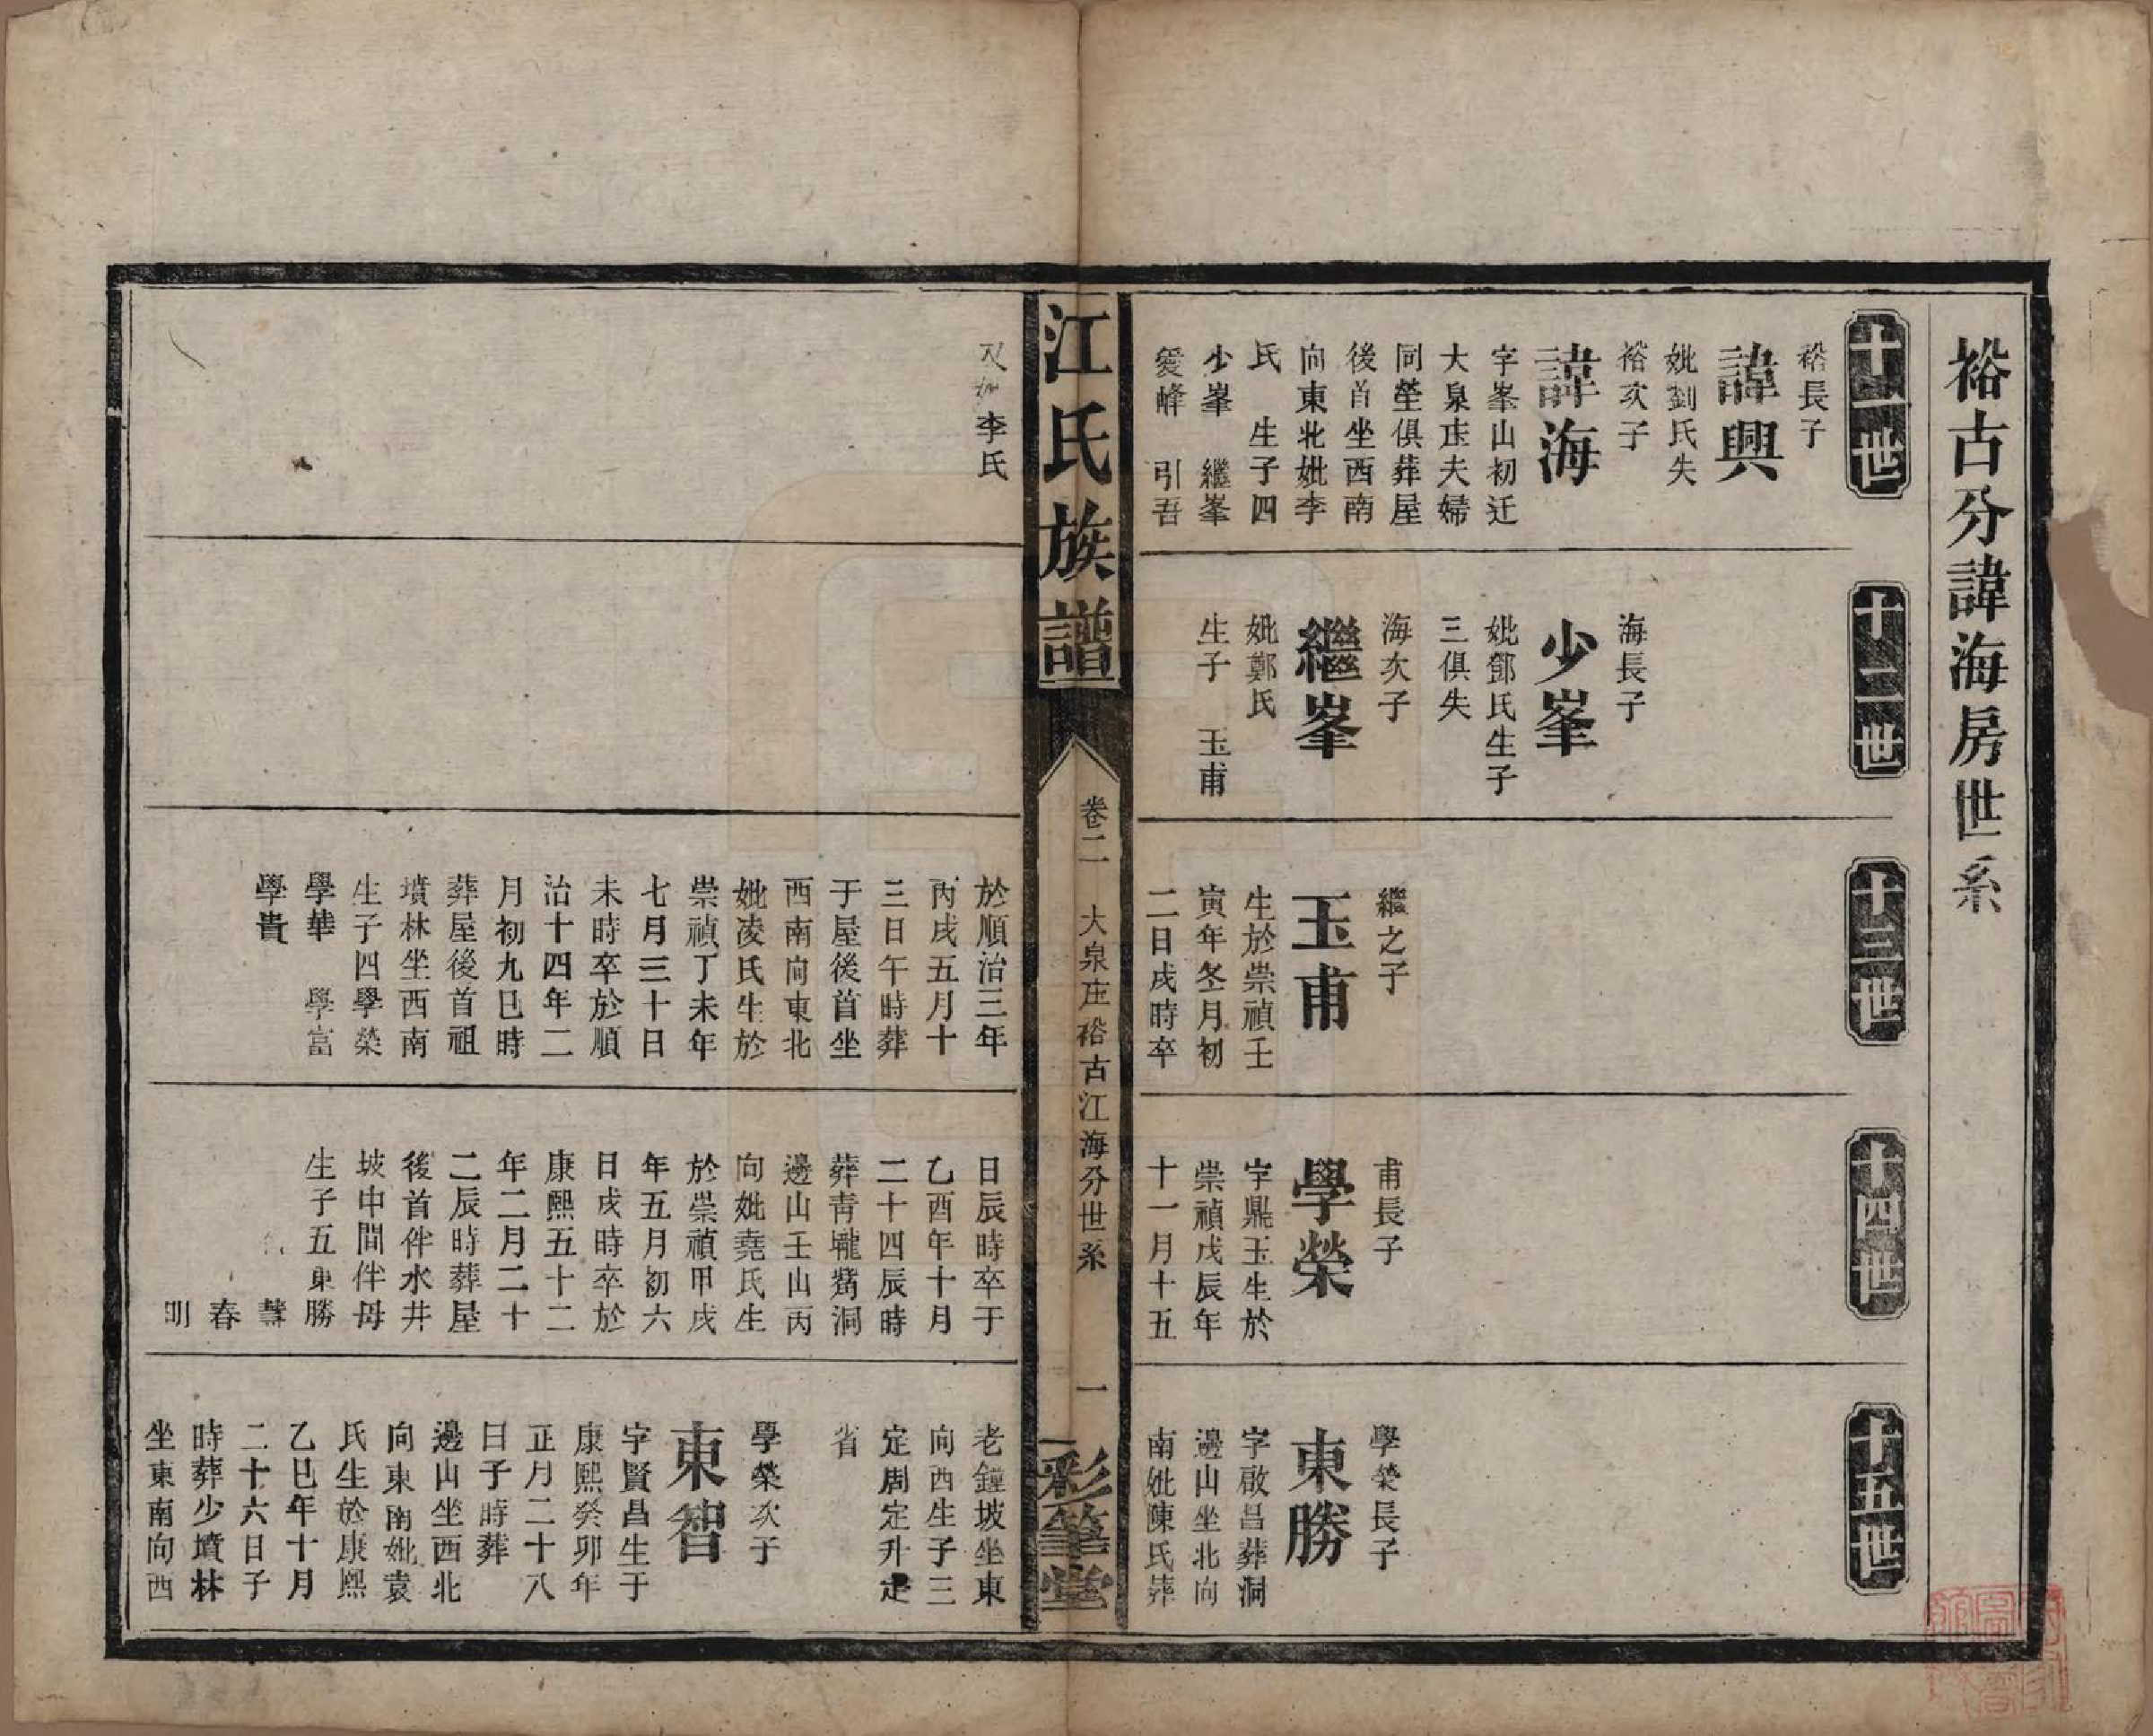 裕古分諱海房世系
十一世
裕長子
諱興
妣劉氏失
裕次子
諱海
字峯山初迁
大泉庄夫婦
同塋俱葬屋
後首坐西南
向東北妣李
氏　生子四
少峯　繼峯
愛峰　引吾
十二世
海長子
少峯
妣鄧氏生子
三俱失
海次子
繼峯
妣鄭氏
生子　玉甫
十三世
繼之子
玉甫
生於崇禎壬
寅年冬月初
二日戌時卒
十四世
甫長子
學榮
字鼎玉生於
崇禎戊辰年
十一月十五
十五世
學榮長子
東勝
字啟昌葬洞
邊山坐北向
南妣陳氏葬
江氏族譜
卷二　大泉庄裕古江海分世系　一
彩筆堂
李氏
於順治三年
丙戌五月十
三日午時葬
于屋後首坐
西南向東北
妣凌氏生於
崇禎丁未年
七月三十日
未時卒於順
治十四年二
月初九巳時
葬屋後首祖
墳林坐西南
生子四學榮
學華　學富
學貴
日辰時卒于
乙酉年十月
二十四辰時
葬青壠嵩洞
邊山壬山丙
向妣堯氏生
於崇禎甲戌
年五月初六
日戌時卒於
康熙五十二
年二月二十
二辰時葬屋
後首伴水井
坡中間伴母
生子五東勝
春
明
老鐘坡坐東
向西生子三
定周定升定
省
學榮次子
東智
字賢昌生于
康熙癸卯年
正月二十八
日子時葬
邊山坐西北
向東南妣袁
氏生於康熙
乙巳年十月
二十六日子
時葬少墳林
坐東南向西